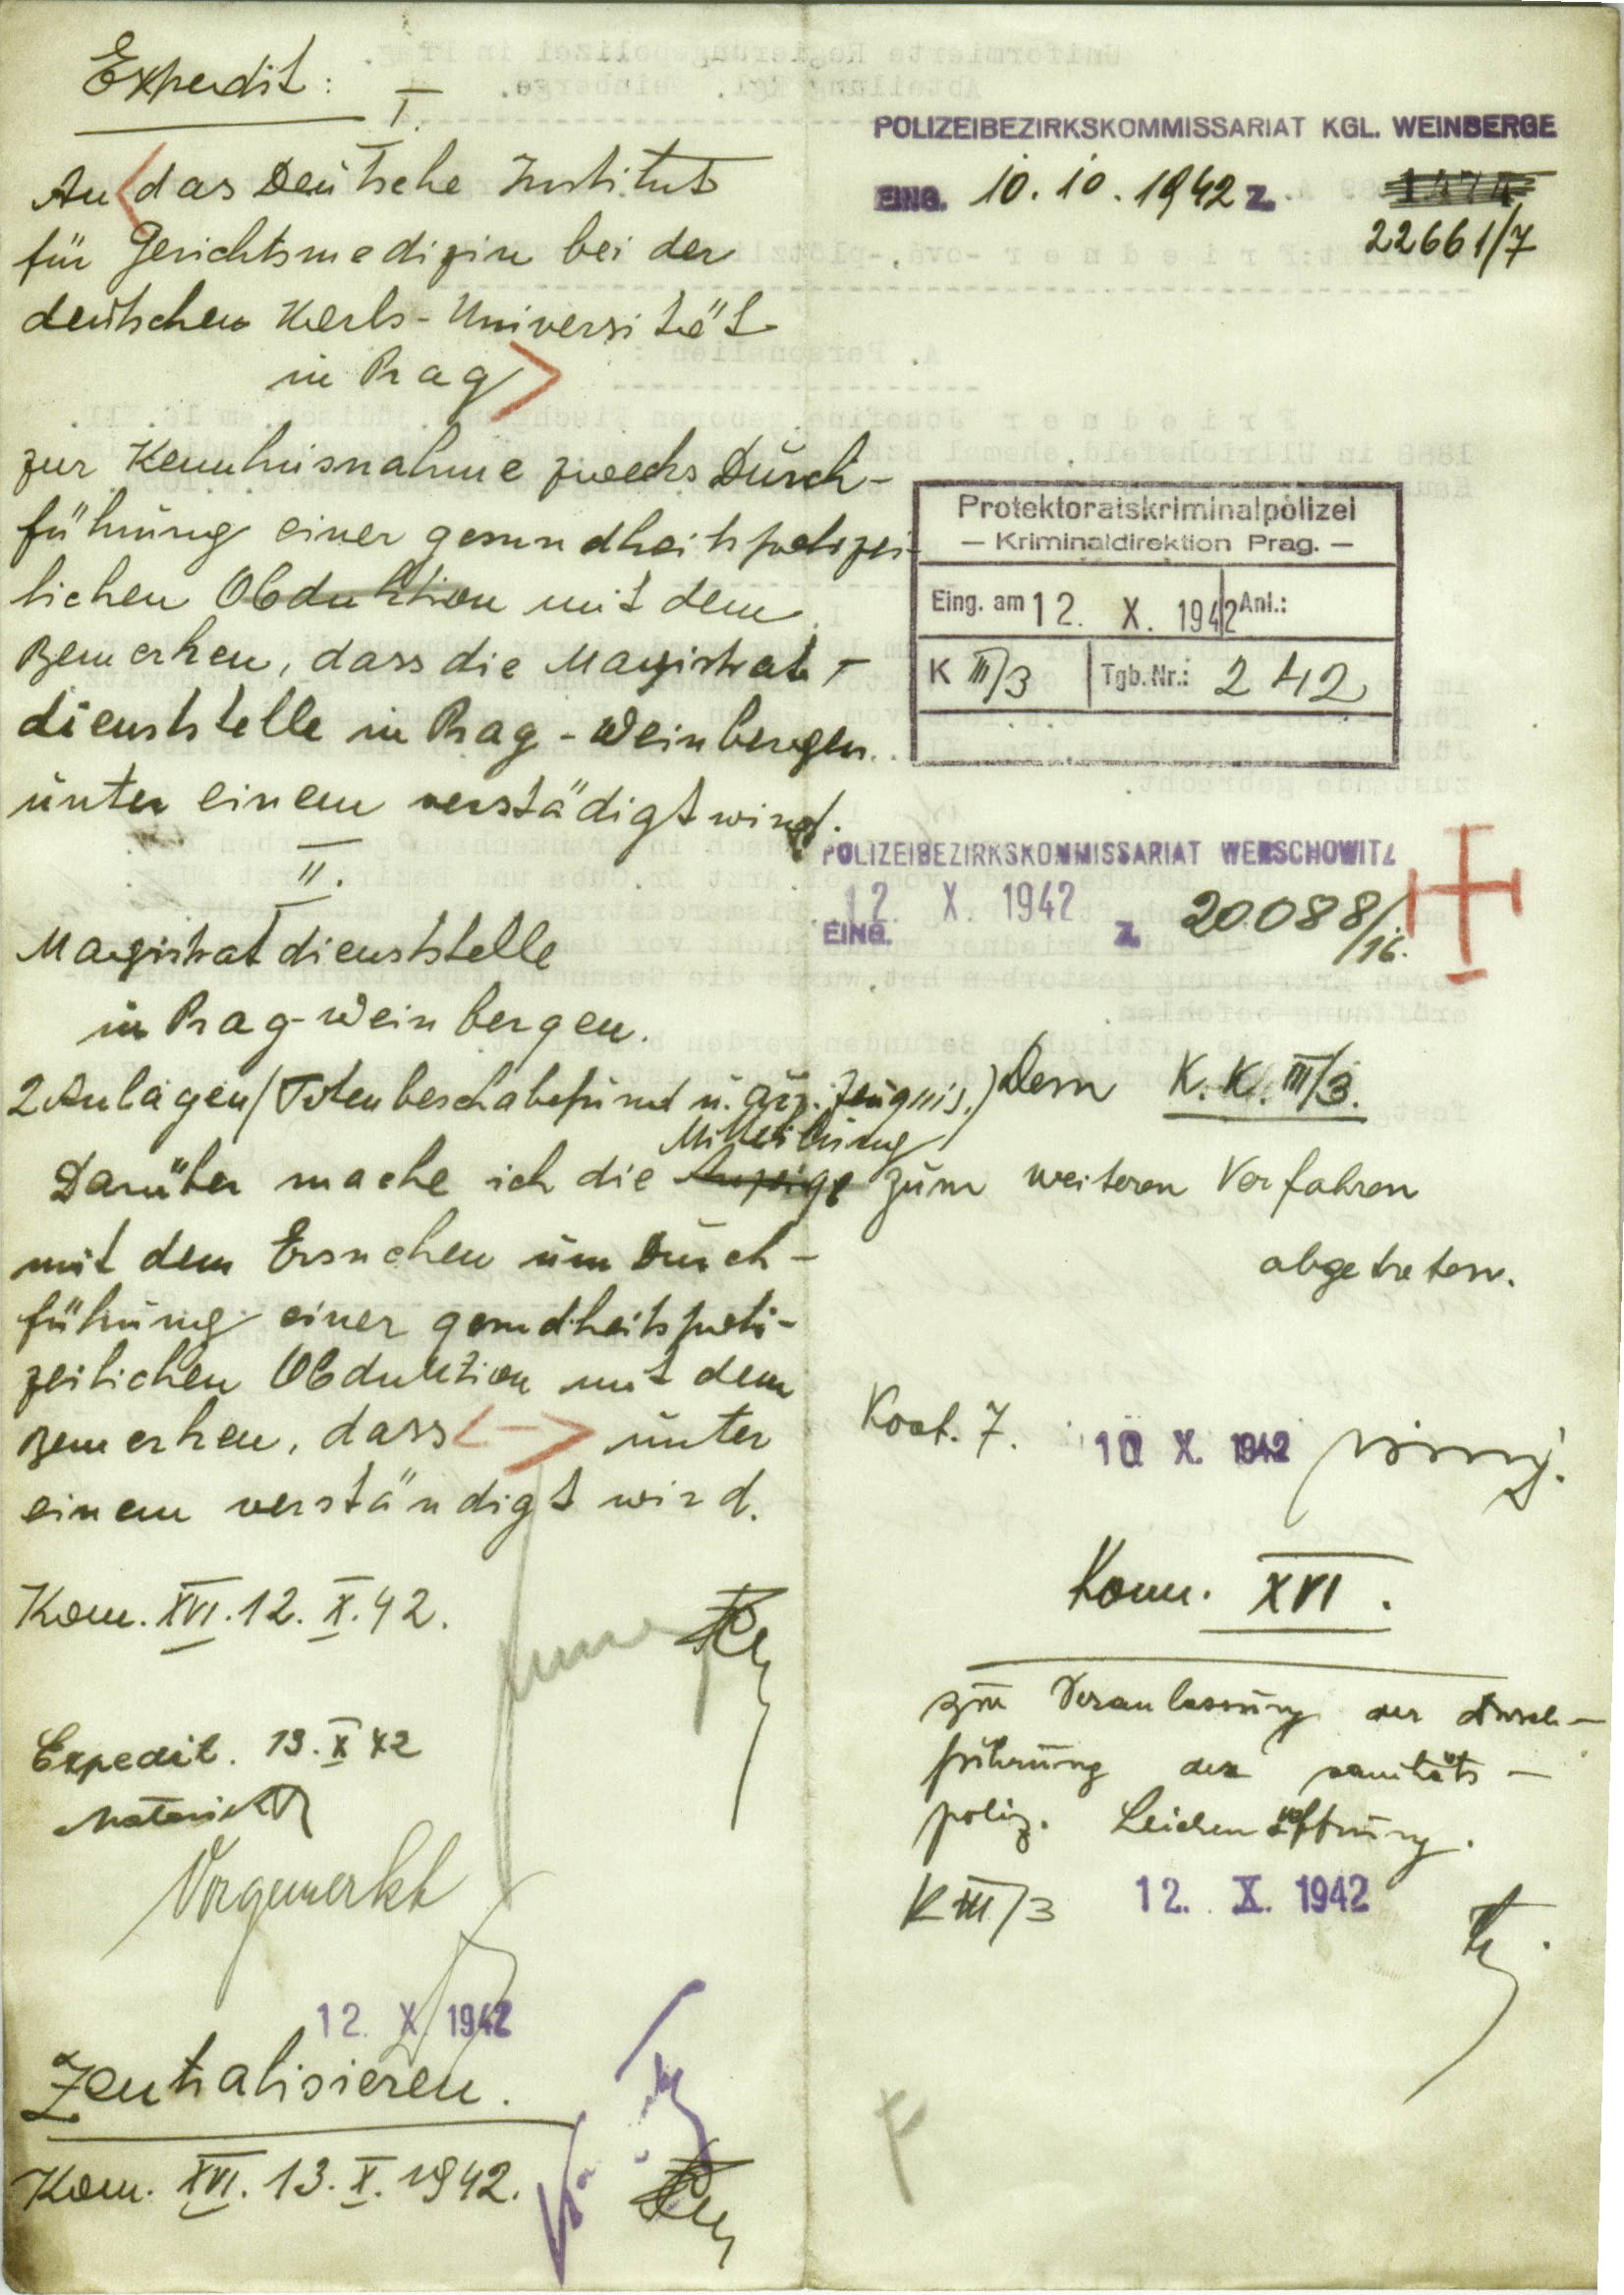 Expedit:
I.
An das Deutsche Institut
für Gerichtsmedizin bei der
deutschen Karls-Universität
in Prag
zur Kenntnisnahme zwecks Durch-
führung einer gesundheitspolizei-
lichen Obduktion mit dem
Bemerken, dass die Magistrats-
dienststelle in Prag-Weinbergen
unter einem verstädigt wird.
II.
Magistratdienststelle
in Prag-Weinbergen.
2 Anlagen (Totenbeschabefund u. ärz. Zeugnis.)
Mitteilung
Darüber mache ich die Anzeige
mit dem Ersuchen um Durch-
führung einer gesundheitspoli-
zeilichen Obduktion mit dem
Bemerken, dass < - > unter
einem verständigt wird.
Kom. XVI. 12. X. 42.
Expedit. 13. X 42
Vorgemerkt
12. X. 1942
Zentralisieren.
Kom. XVI. 13. X. 1942.
POLIZEIBEZIRKSKOMMISSARIAT KGL. WEINBERGE
EING. 10. 10. 1942 Z.
22661/7
Protektoratskriminalpolizei
— Kriminaldirektion Prag. —
Eing. am 12. X. 1942 Anl.:
K III/3 Tgb. Nr.: 242
POLIZEIBEZIRKSKOMMISSARIAT WERSCHOWITZ
12. X. 1942
EING. Z. 20088/16.
Dem K. K. III/3.
zum weiteren Verfahren
abgetreten.
7. 10 X. 1942
Komm. XVI.
zur Veranlassung der Durch-
führung der sanitäts-
poliz. Leichenöffnung.
K III/3 12. X. 1942
F